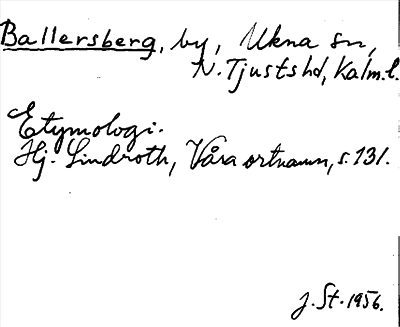 Ballersberg, by, Ukna sn,
N. Tjusts hd, Kalm. l.
Etymologi.
Hj. Lindroth, Våra ortnamn, s. 131.
J. St. 1956.